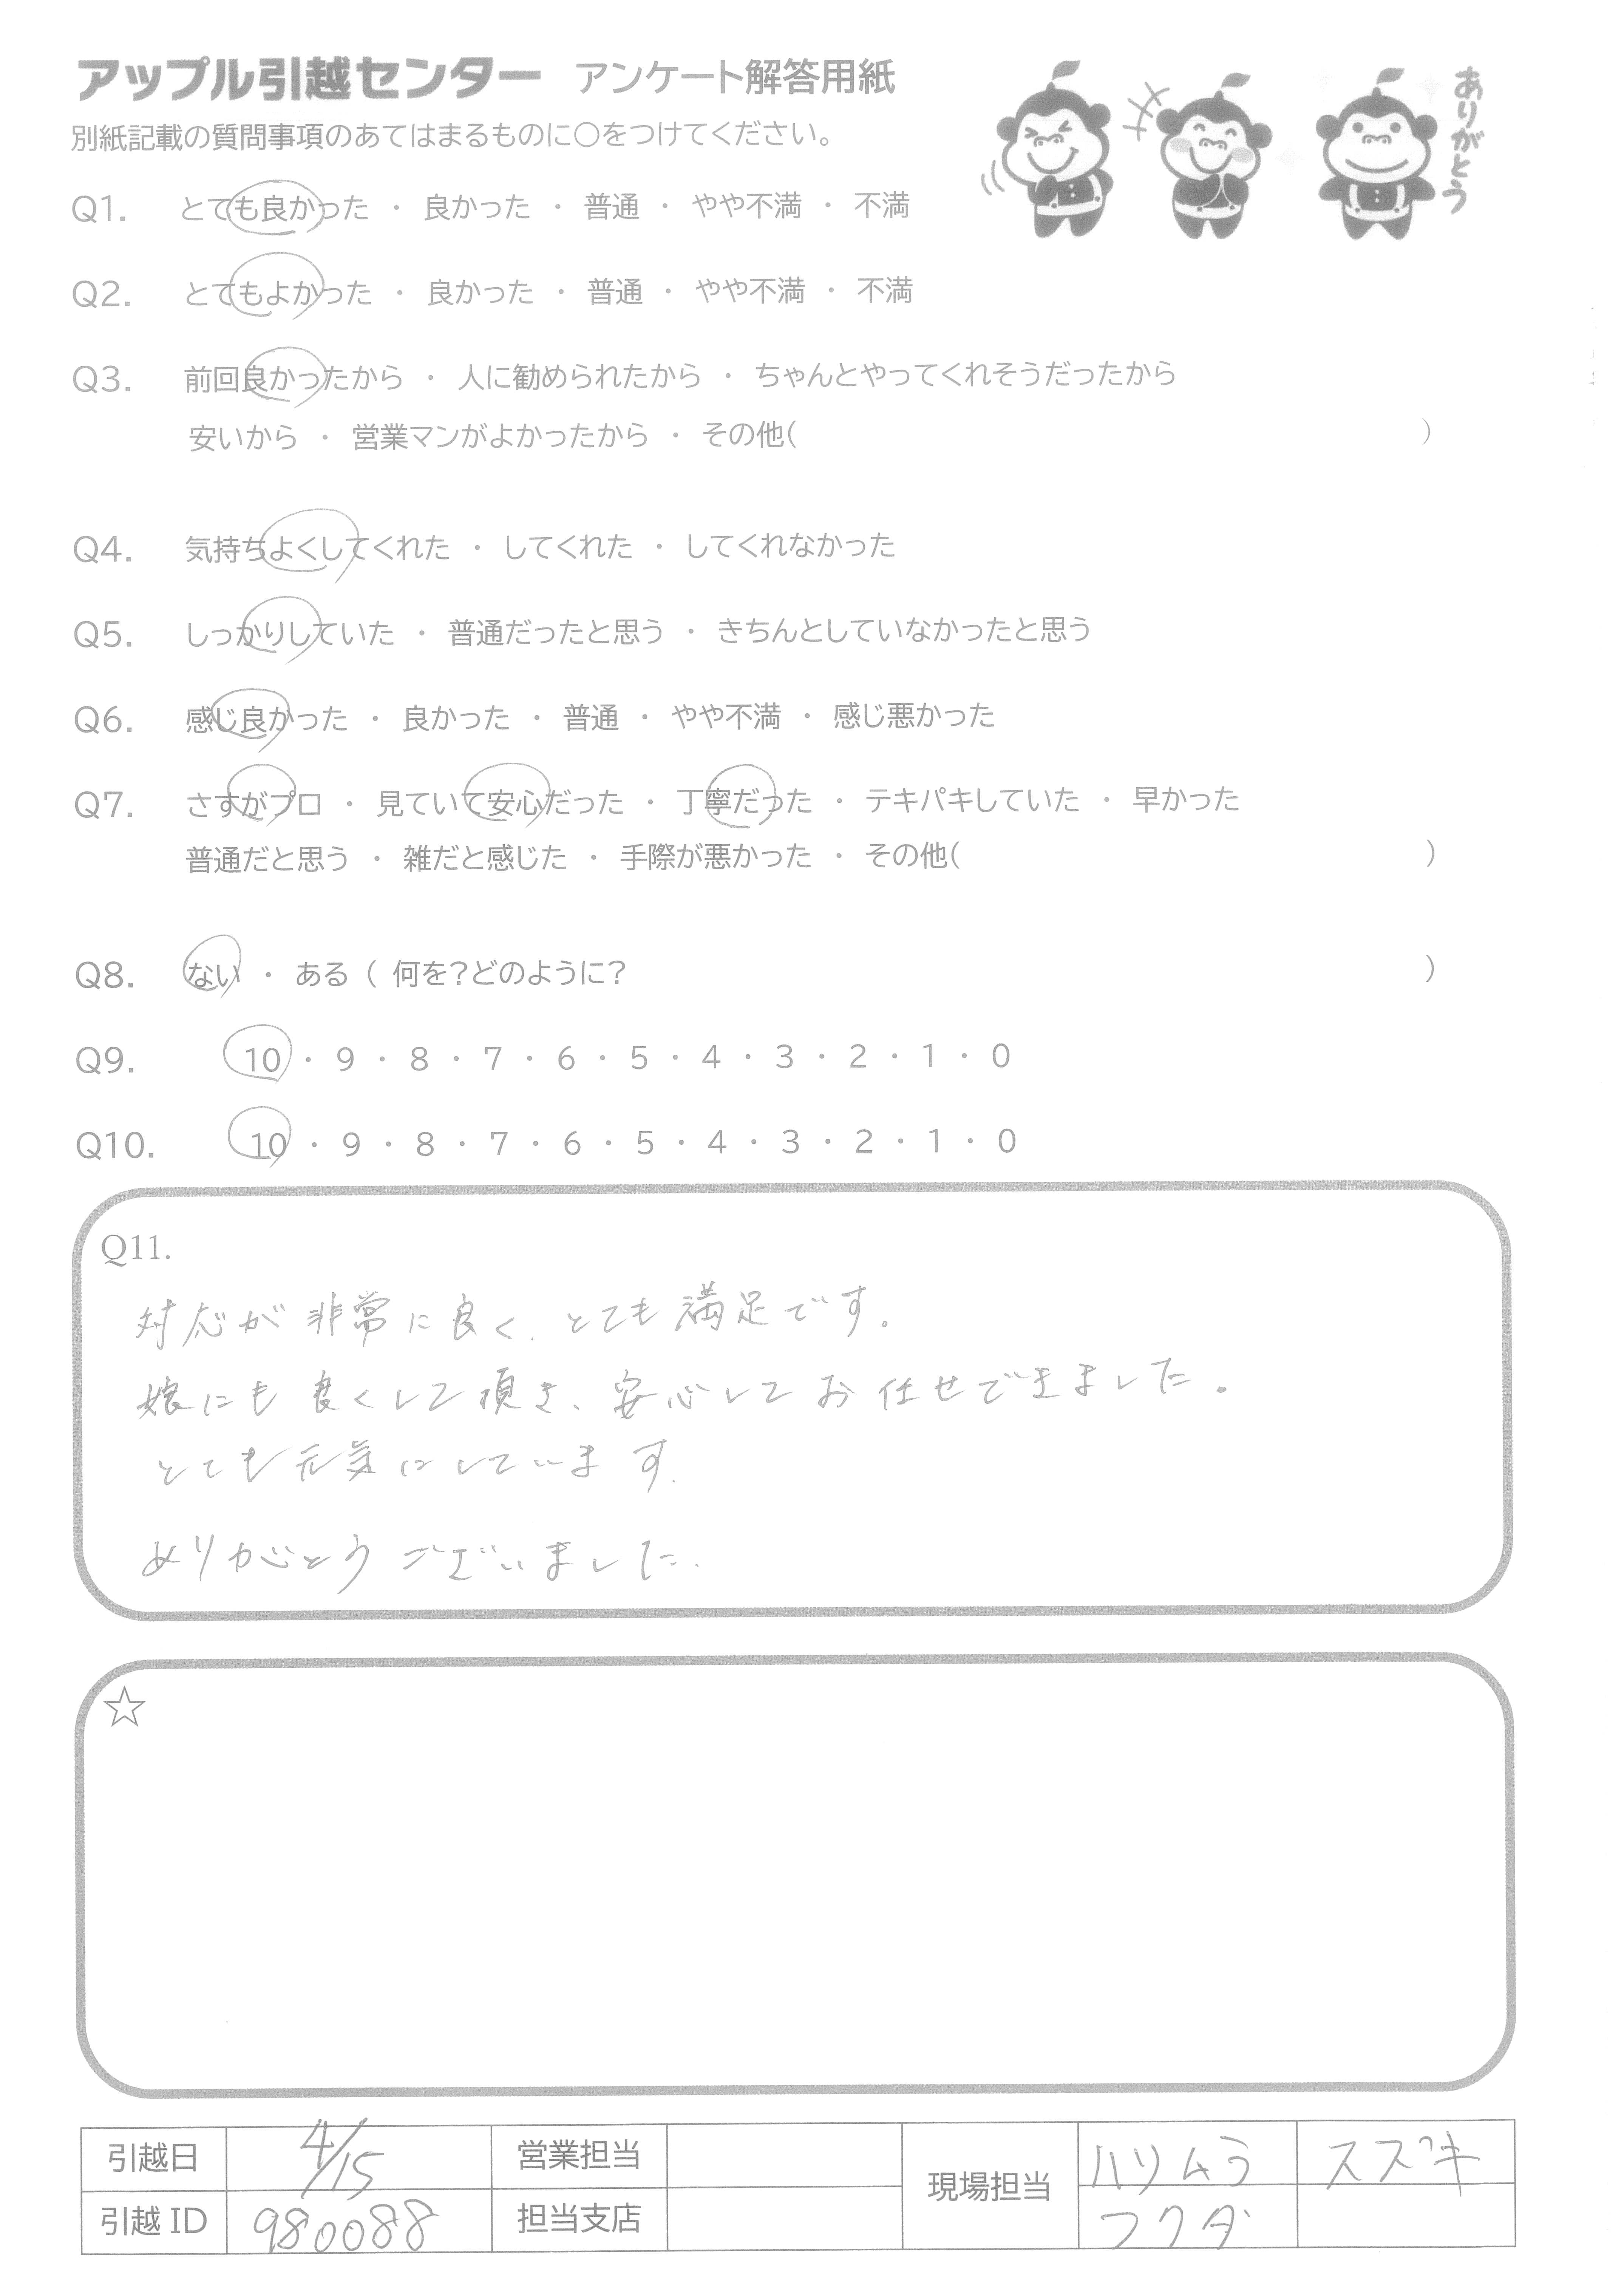 アップル引越センター アンケート解答用紙
ありがとう
別紙記載の質問事項のあてはまるものに○をつけてください。
Q1. とても良かった ・ 良かった ・ 普通 ・ やや不満 ・ 不満
Q2. とてもよかった ・ 良かった ・ 普通 ・ やや不満 ・ 不満
Q3. 前回良かったから ・ 人に勧められたから ・ ちゃんとやってくれそうだったから
安いから ・ 営業マンがよかったから ・ その他( )
Q4. 気持ちよくしてくれた ・ してくれた ・ してくれなかった
Q5. しっかりしていた ・ 普通だったと思う ・ きちんとしていなかったと思う
Q6. 感じ良かった ・ 良かった ・ 普通 ・ やや不満 ・ 感じ悪かった
Q7. さすがプロ ・ 見ていて安心だった ・ 丁寧だった ・ テキパキしていた ・ 早かった
普通だと思う ・ 雑だと感じた ・ 手際が悪かった ・ その他( )
Q8. ない ・ ある ( 何を?どのように? )
Q9. 10 ・ 9 ・ 8 ・ 7 ・ 6 ・ 5 ・ 4 ・ 3 ・ 2 ・ 1 ・ 0
Q10. 10 ・ 9 ・ 8 ・ 7 ・ 6 ・ 5 ・ 4 ・ 3 ・ 2 ・ 1 ・ 0
Q11.
対応が非常に良く、とても満足です。
娘にも良くして頂き、安心してお任せできました。
とても元気にしています。
ありがとうございました.
☆
引越日 4/15 営業担当 現場担当 ハリムラ スズキ
引越 ID 980088 担当支店 フクダ